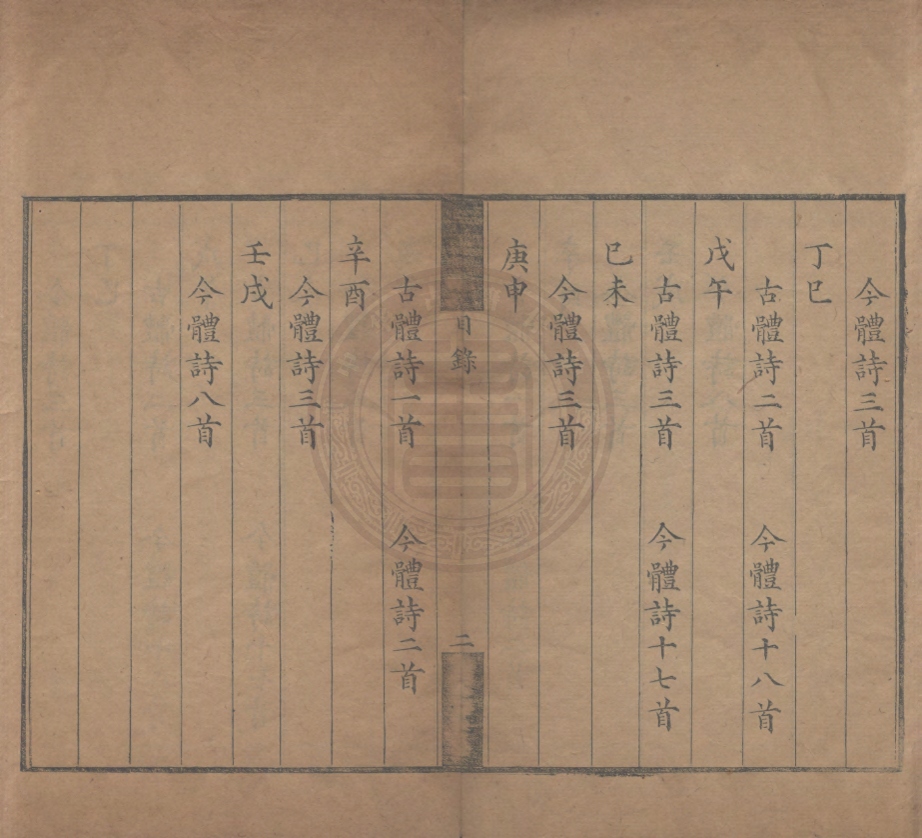 今體詩三首
丁巳
古體詩二首 今體詩十八首
戊午
古體詩三首 今體詩十七首
己未
今體詩三首
庚申
目錄 二
古體詩一首 今體詩二首
辛酉
今體詩三首
壬戌
今體詩八首